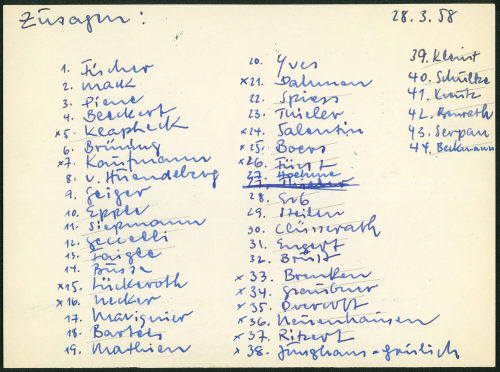 Zusagen:
28.3.58
1. Fischer
2. Mack
3. Piene
4. Beckert
x5. Klapheck
6. Brüning
x7. Kaufmann
8. v. Huendeberg
9. Geiger
10. Epple
11. Siepmann
12. Geccelli
13. Faigle
14. Busse
x15. Lückeroth
x16. Necker
17. Marignier
18. Bartels
19. Mathieu
20. Yves
x21. Dahmen
22. Spiess
23. Thieler
x24. Salentin
x25. Boers
x26. Fürst
27. Hoehme
27. Thieler
28. Erb
29. Steilen
30. Clüsserath
31. Engert
32. Brüst
x33. Brenken
x34. Graubner
x35. Overhoff
x36. Neuenhausen
x37. Ritzert
x38. Junghans-Gaulich
39. Kleint
40. Schultze
41. Kreutz
42. Benrath
43. Serpan
44. Beckmann